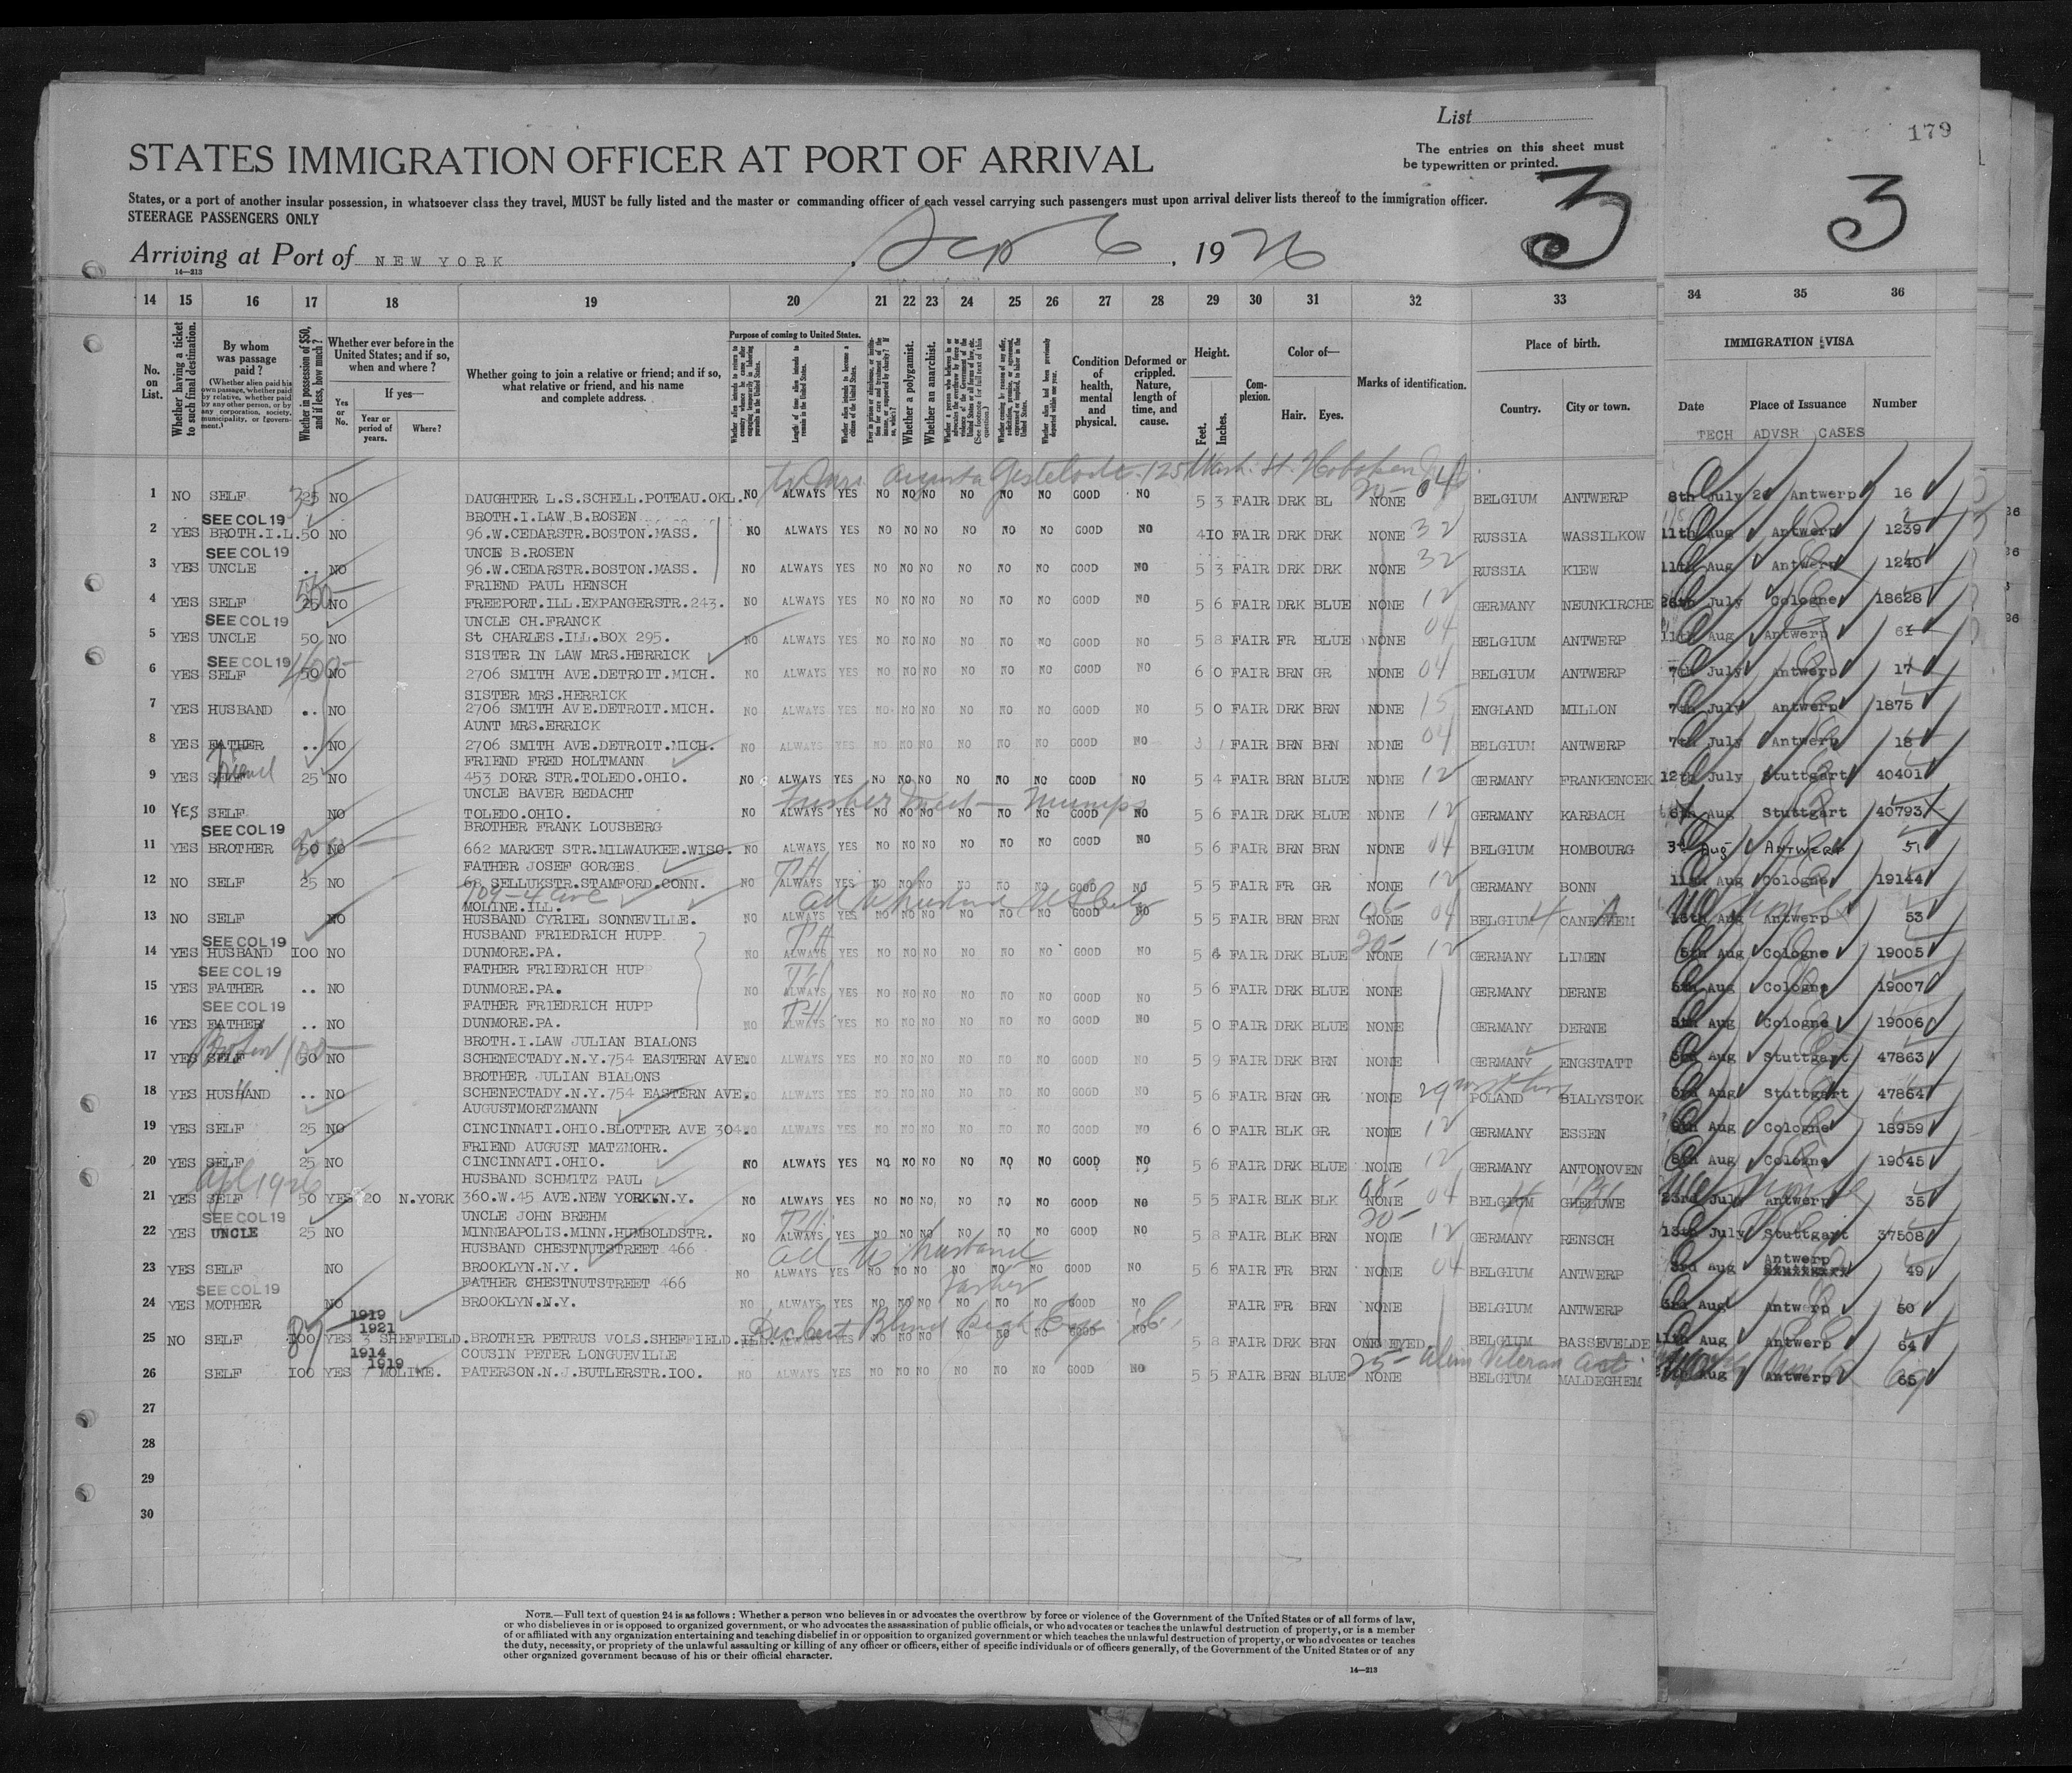 179
List
STATES IMMIGRATION OFFICER AT PORT OF ARRIVAL
The entries on this sheet must
be typewritten or printed.
3
3
States, or a port of another insular possession, in whatsoever class they travel, MUST be fully listed and the master or commanding officer of each vessel carrying such passengers must upon arrival deliver lists thereof to the immigration officer.
STEERAGE PASSENGERS ONLY
Arriving at Port of NEW YORK, Sep 6, 1926
14—213
14 15 16 17 18 19 20 21 22 23 24 25 26 27 28 29 30 31 32 33 34 35 36
No. on List.
Whether having a ticket to such final destination.
By whom was passage paid?
(Whether alien paid his own passage, whether paid by relative, whether paid by any other person, or by any corporation, society, municipality, or government.)
Whether in possession of $50, and if less, how much?
Whether ever before in the United States; and if so, when and where?
Yes or No.
If yes—
Year or period of years.
Where?
Whether going to join a relative or friend; and if so, what relative or friend, and his name and complete address.
Purpose of coming to United States.
Length of time alien intends to remain in the United States.
Whether alien intends to become a citizen of the United States.
Whether a polygamist.
Whether an anarchist.
Condition of health, mental and physical.
Deformed or crippled. Nature, length of time, and cause.
Height.
Feet. Inches.
Complexion.
Color of—
Hair. Eyes.
Marks of identification.
Place of birth.
Country. City or town.
IMMIGRATION VISA
Date Place of Issuance Number
TECH ADVSR CASES
125 Wash. St. Hoboken
1 NO SELF 25 NO DAUGHTER L.S.SCHELL.POTEAU.OKL. NO ALWAYS YES NO NO NO NO NO NO GOOD NO 5 3 FAIR DRK BL NONE BELGIUM ANTWERP 8th July 26 Antwerp 16
SEE COL 19 BROTH.I.LAW B.ROSEN
2 YES BROTH.I.L. 50 NO 96.W.CEDARSTR.BOSTON.MASS. NO ALWAYS YES NO NO NO NO NO NO GOOD NO 4 10 FAIR DRK DRK NONE 32 RUSSIA WASSILKOW 11th Aug Antwerp 1239
SEE COL 19 UNCE B.ROSEN
3 YES UNCLE .. NO 96.W.CEDARSTR.BOSTON.MASS. NO ALWAYS YES NO NO NO NO NO NO GOOD NO 5 3 FAIR DRK DRK NONE 32 RUSSIA KIEW 11th Aug Antwerp 1240
FRIEND PAUL HENSCH
4 YES SELF 25 NO FREEPORT.ILL.EXPANGERSTR.243. NO ALWAYS YES NO NO NO NO NO NO GOOD NO 5 6 FAIR DRK BLUE NONE 12 GERMANY NEUNKIRCHE 26th July Cologne 18628
SEE COL 19 UNCLE CH.FRANCK
5 YES UNCLE 50 NO St CHARLES.ILL.BOX 295. NO ALWAYS YES NO NO NO NO NO NO GOOD NO 5 8 FAIR FR BLUE NONE 04 BELGIUM ANTWERP 11th Aug Antwerp
SEE COL 19 SISTER IN LAW MRS.HERRICK
6 YES SELF 50 NO 2706 SMITH AVE.DETROIT.MICH. NO ALWAYS YES NO NO NO NO NO NO GOOD NO 6 0 FAIR BRN GR NONE 04 BELGIUM ANTWERP 7th July Antwerp 17
SISTER MRS.HERRICK
7 YES HUSBAND .. NO 2706 SMITH AVE.DETROIT.MICH. NO ALWAYS YES NO NO NO NO NO NO GOOD NO 5 0 FAIR DRK BRN NONE 15 ENGLAND MILLON 7th July Antwerp 1875
AUNT MRS.ERRICK
8 YES FATHER .. NO 2706 SMITH AVE.DETROIT.MICH. NO ALWAYS YES NO NO NO NO NO NO GOOD NO FAIR BRN BRN NONE 04 BELGIUM ANTWERP 7th July Antwerp 18
Friend FRIEND FRED HOLTMANN
9 YES SELF 25 NO 453 DORR STR.TOLEDO.OHIO. NO ALWAYS YES NO NO NO NO NO NO GOOD NO 5 4 FAIR BRN BLUE NONE 12 GERMANY FRANKENCEK 12th July Stuttgart 40401
UNCLE BAVER BEDACHT Mumps
10 YES SELF NO TOLEDO.OHIO. NO ALWAYS YES NO NO NO NO NO NO GOOD NO 5 6 FAIR DRK BLUE NONE 12 GERMANY KARBACH 6th Aug Stuttgart 40793
SEE COL 19 BROTHER FRANK LOUSBERG
11 YES BROTHER 50 NO 662 MARKET STR.MILWAUKEE.WISC. NO ALWAYS YES NO NO NO NO NO NO GOOD NO 5 6 FAIR BRN BRN NONE 04 BELGIUM HOMBOURG 3rd Aug ANTWERP 51
FATHER JOSEF GORGES
12 NO SELF 25 NO 68 SELLUKSTR.STAMFORD.CONN. NO ALWAYS YES NO NO NO NO NO NO GOOD NO 5 5 FAIR FR GR NONE 12 GERMANY BONN 11th Aug Cologne 19144
709-4 Ave MOLINE.ILL. ad to husband
13 NO SELF NO HUSBAND CYRIEL SONNEVILLE. NO ALWAYS YES NO NO NO NO NO NO GOOD NO 5 5 FAIR BRN BRN NONE 04 BELGIUM CANEGHEM 13th Aug Antwerp 53
SEE COL 19 HUSBAND FRIEDRICH HUPP
14 YES HUSBAND 100 NO DUNMORE.PA. NO ALWAYS YES NO NO NO NO NO NO GOOD NO 5 4 FAIR DRK BLUE NONE 12 GERMANY LIMEN 5th Aug Cologne 19005
SEE COL 19 FATHER FRIEDRICH HUP
15 YES FATHER .. NO DUNMORE.PA. NO ALWAYS YES NO NO NO NO NO NO GOOD NO 5 6 FAIR DRK BLUE NONE GERMANY DERNE 5th Aug Cologne 19007
SEE COL 19 FATHER FRIEDRICH HUPP
16 YES FATHER .. NO DUNMORE.PA. NO ALWAYS YES NO NO NO NO NO NO GOOD NO 5 0 FAIR DRK BLUE NONE GERMANY DERNE 5th Aug Cologne 19006
BROTH.I.LAW JULIAN BIALONS
17 YES SELF 50 NO SCHENECTADY.N.Y.754 EASTERN AVE. NO ALWAYS YES NO NO NO NO NO NO GOOD NO 5 9 FAIR DRK BRN NONE GERMANY ENGSTATT 3rd Aug Stuttgart 47863
BROTHER JULIAN BIALONS
18 YES HUSBAND .. NO SCHENECTADY.N.Y.754 EASTERN AVE. NO ALWAYS YES NO NO NO NO NO NO GOOD NO 5 6 FAIR BRN GR NONE 29 POLAND BIALYSTOK 3rd Aug Stuttgart 47864
AUGUSTMORTZMANN
19 YES SELF 25 NO CINCINNATI.OHIO.BLOTTER AVE 304. NO ALWAYS YES NO NO NO NO NO NO GOOD NO 6 0 FAIR BLK GR NONE 12 GERMANY ESSEN Aug Cologne 18959
FRIEND AUGUST MATZMOHR.
20 YES SELF 25 NO CINCINNATI.OHIO. NO ALWAYS YES NO NO NO NO NO NO GOOD NO 5 6 FAIR DRK BLUE NONE 12 GERMANY ANTONOVEN Aug Cologne 19045
HUSBAND SCHMITZ PAUL
21 YES SELF 50 YES 20 N.YORK 360.W.45 AVE.NEW YORK.N.Y. NO ALWAYS YES NO NO NO NO NO NO GOOD NO 5 5 FAIR BLK BLK NONE 04 BELGIUM GHELUWE 23rd July 35
SEE COL 19 UNCLE JOHN BREHM
22 YES UNCLE 25 NO MINNEAPOLIS.MINN.HUMBOLDSTR. NO ALWAYS YES NO NO NO NO NO NO GOOD NO 5 8 FAIR BLK BRN NONE 12 GERMANY RENSCH 13th July Stuttgart 37508
HUSBAND CHESTNUTSTREET 466 ad to husband Antwerp
23 YES SELF NO BROOKLYN.N.Y. NO ALWAYS YES NO NO NO NO NO NO GOOD NO 5 6 FAIR FR BRN NONE 04 BELGIUM ANTWERP 3rd Aug 49
SEE COL 19 FATHER CHESTNUTSTREET 466 father
24 YES MOTHER NO BROOKLYN.N.Y. NO ALWAYS YES NO NO NO NO NO NO GOOD NO FAIR FR BRN NONE BELGIUM ANTWERP 3rd Aug Antwerp 50
1919
1921 Blind Right Eye
25 NO SELF 100 YES SHEFFIELD. BROTHER PETRUS VOLS.SHEFFIELD.ILL. ALWAYS YES NO NO NO NO NO NO GOOD NO 5 8 FAIR DRK BRN ONE EYED BELGIUM BASSEVELDE 11th Aug Antwerp 64
1914
1919 COUSIN PETER LONGUEVILLE Alien Veteran Act
26 SELF 100 YES MOLINE. PATERSON.N.J.BUTLERSTR.100. NO ALWAYS YES NO NO NO NO NO NO GOOD NO 5 5 FAIR BRN BLUE NONE BELGIUM MALDEGHEM Aug Antwerp
27
28
29
30
NOTE.—Full text of question 24 is as follows: Whether a person who believes in or advocates the overthrow by force or violence of the Government of the United States or of all forms of law,
or who disbelieves in or is opposed to organized government, or who advocates the assassination of public officials, or who advocates or teaches the unlawful destruction of property, or is a member
of or affiliated with any organization entertaining and teaching disbelief in or opposition to organized government or which teaches the unlawful destruction of property, or who advocates or teaches
the duty, necessity, or propriety of the unlawful assaulting or killing of any officer or officers, either of specific individuals or of officers generally, of the Government of the United States or of any
other organized government because of his or their official character.
14—213